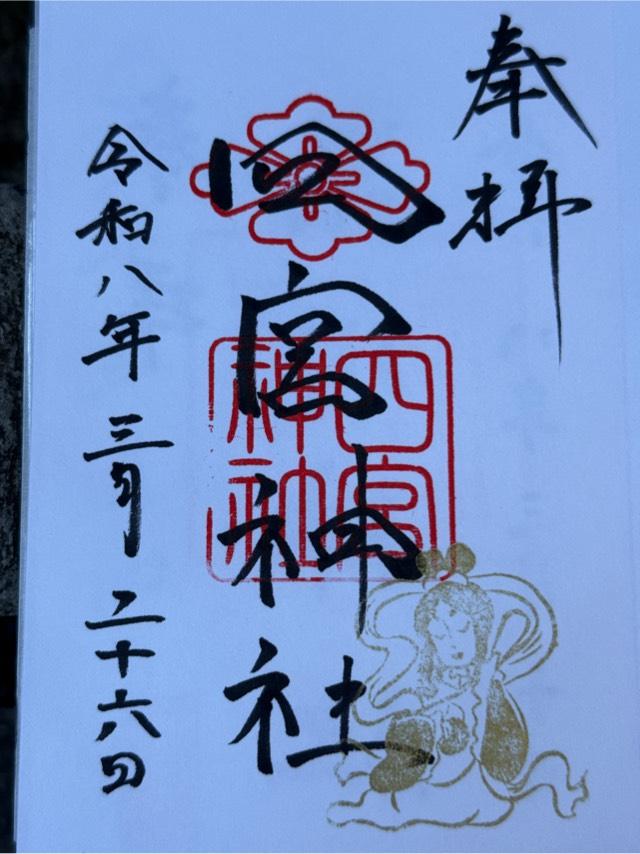 奉拝
四宮神社
四宮神社
令和八年三月二十六日